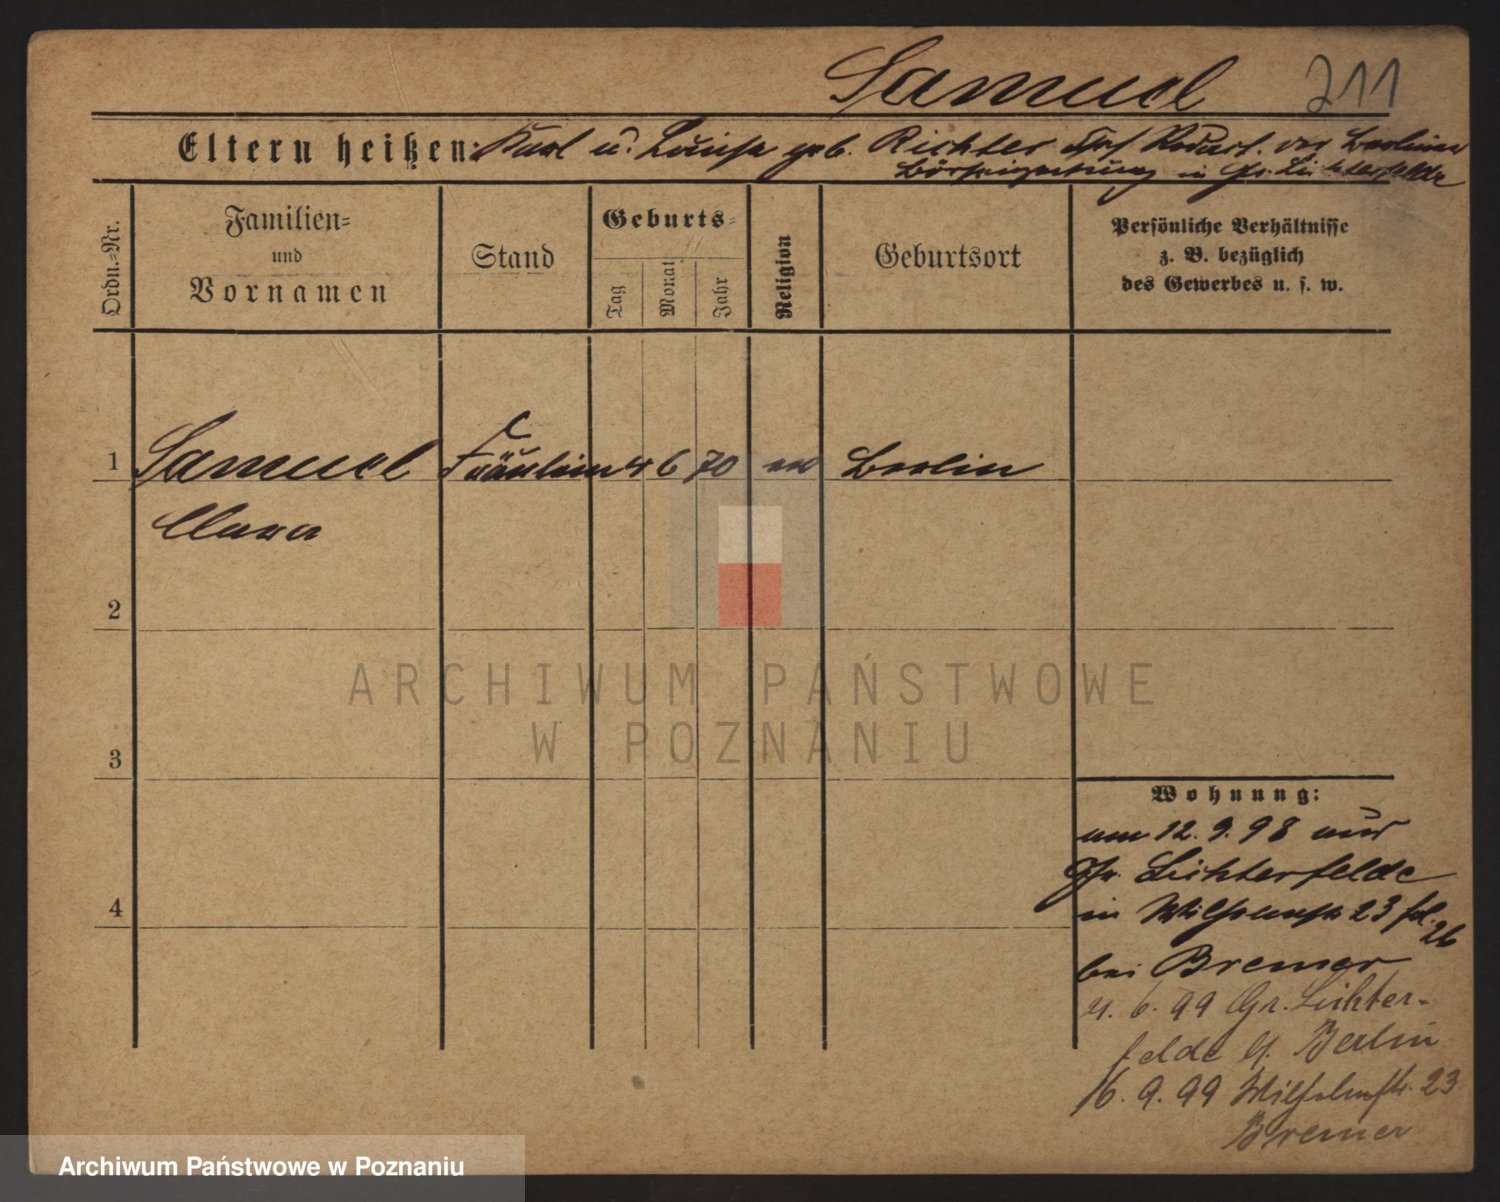 Samuel 211
Eltern heißen: Karl u. Louise geb. Richter der Berliner
Börsenzeitung in Gr. Lichterfelde
Ordn.-Nr.
Familien-
und
Vornamen
Stand
Geburts-
Tag
Monat
Jahr
Religion
Geburtsort
Persönliche Verhältnisse
z. B. bezüglich
des Gewerbes u. s. w.
1 Samuel Fräulein 4 6 70 ev Berlin
Clara
2
3
4
ARCHIWUM PAŃSTWOWE
W POZNANIU
Wohnung:
am 12. 9. 98 aus
Gr. Lichterfelde
in Wilhelmstr 23
bei Bremer
6. 99 Gr. Lichter-
felde Berlin
16. 9. 99 Wilhelmstr. 23
Bremer
Archiwum Państwowe w Poznaniu